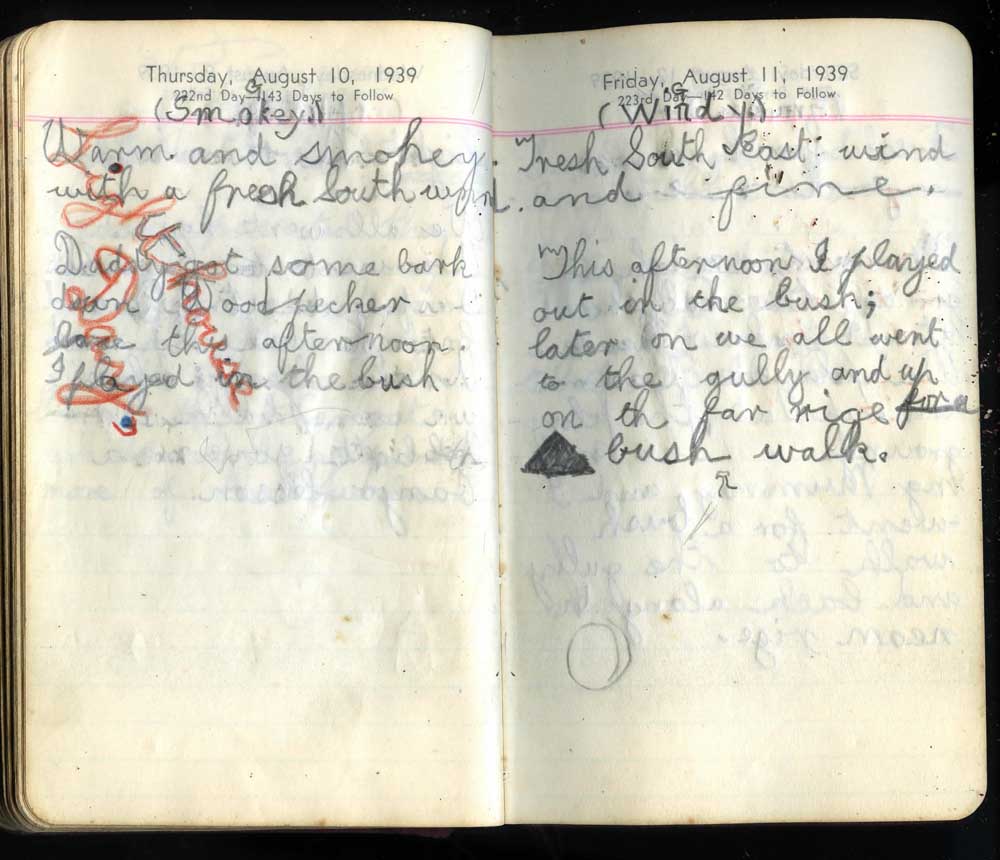 Thursday, August 10, 1939
222nd Day—143 Days to Follow
(Smokey.)
Warm and smokey.
with a fresh South wind.
Daddy got some bark
down Woodpecker
lane this afternoon.
I played in the bush
Friday, August 11, 1939
223rd Day—142 Days to Follow
(Windy.)
Fresh South East wind
and fine.
This afternoon I played
out in the bush;
later on we all went
to the gully and up
on th far rige for a
bush walk.